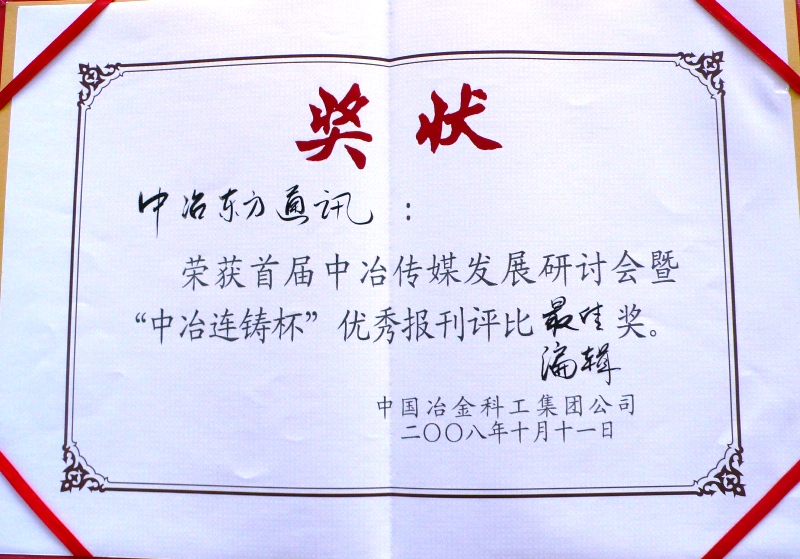 奖状
中冶东方通讯：
荣获首届中冶传媒发展研讨会暨
“中冶连铸杯”优秀报刊评比最佳奖。
编辑
中国冶金科工集团公司
二〇〇八年十月十一日